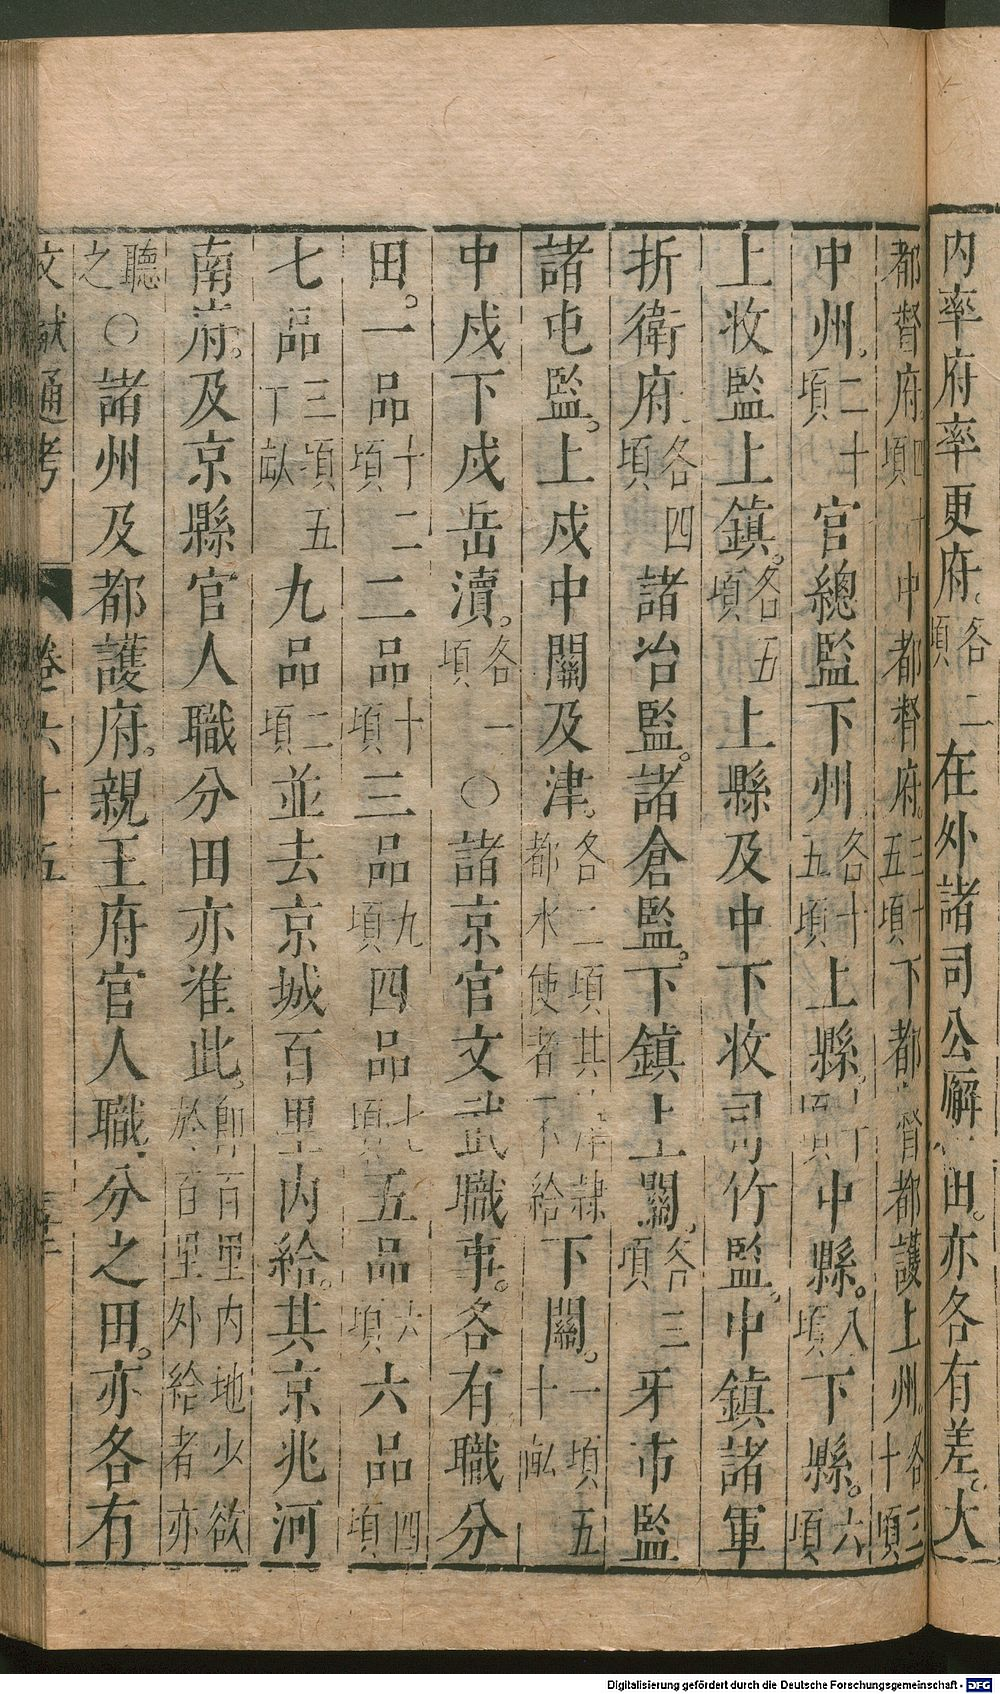 內率府率更府。各二頃在外諸司公廨田。亦各有差。大
都督府四十頃中都督府。三十五頃下都督都護上州。各三十頃
中州。二十頃官總監下州各十五頃上縣。十頃中縣。八頃下縣。六頃
上牧監上鎮。各五頃上縣及中下牧司竹監。中鎮諸軍
折衝府。各四頃諸冶監。諸倉監。下鎮上關。各三頃牙市監
諸屯監。上戍中關及津。各二頃其津隸都水使者不給下關。一頃五十畝
中戍下戍岳瀆。各一頃○諸京官文武職事。各有職分
田。一品十二頃二品十頃三品九頃四品七頃五品六頃六品四頃
七品三頃五十畝九品二頃並去京城百里內給。其京兆河
南府。及京縣官人職分田亦准此。即百里內地少欲於百里外給者亦
聽之○諸州及都護府。親王府官人職分之田。亦各有
文獻通考 卷六十五
Digitalisierung gefördert durch die Deutsche Forschungsgemeinschaft - DFG